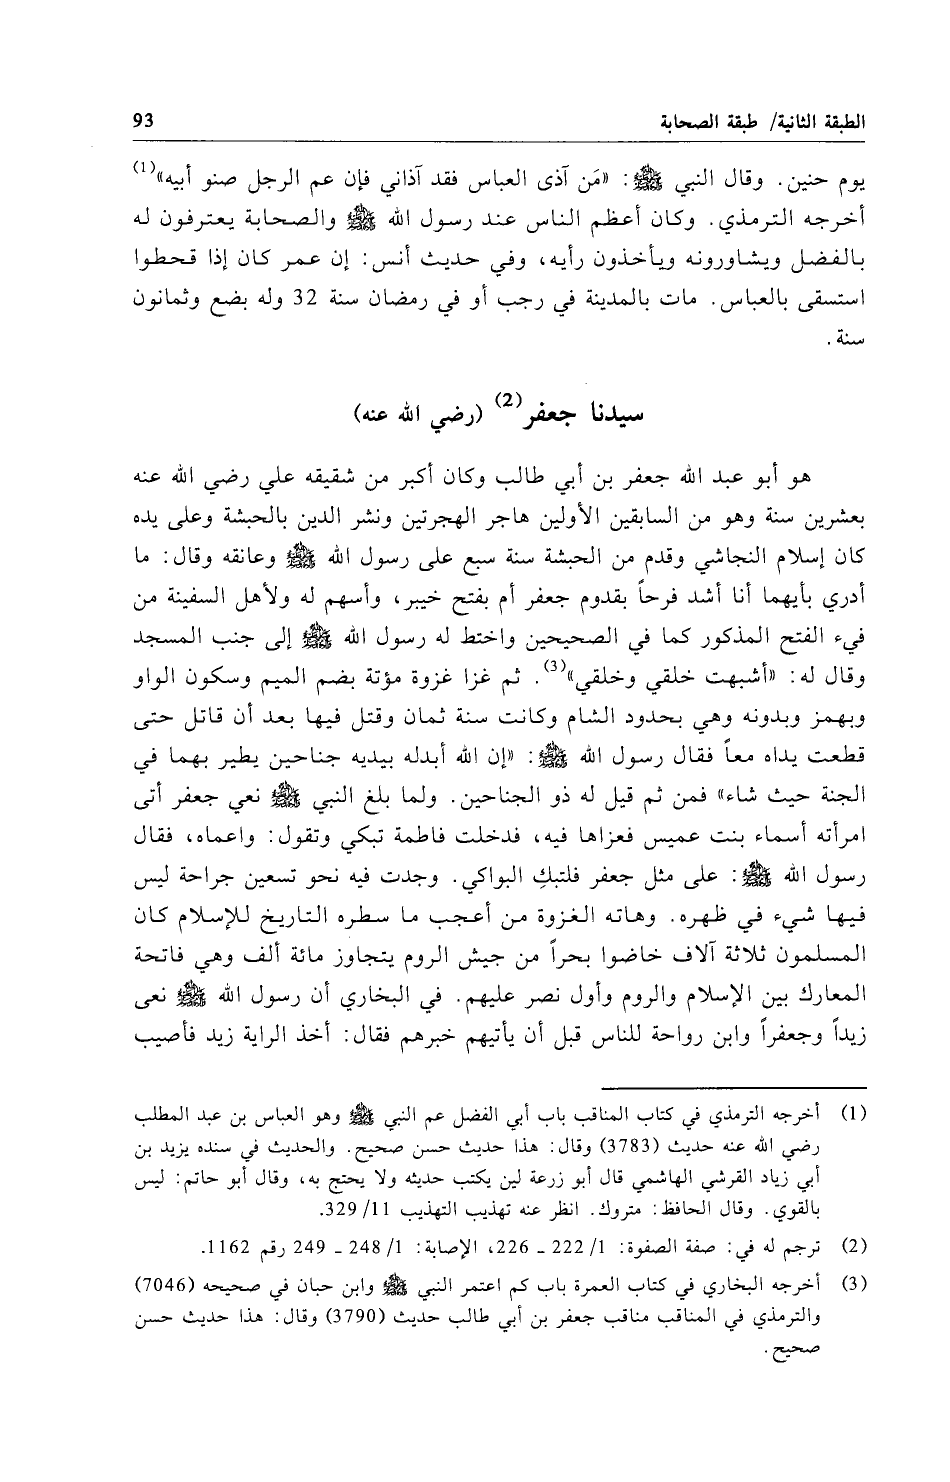 الطبقة الثانية/ طبقة الصحابة 93
يوم حنين. وقال النبي ﷺ: «مَن آذى العباس فقد آذاني فإن عم الرجل صنو أبيه»(1)
أخرجه الترمذي. وكان أعظم الناس عند رسول الله ﷺ والصحابة يعترفون له
بالفضل ويشاورونه ويأخذون رأيه، وفي حديث أنس: إن عمر كان إذا قحطوا
استسقى بالعباس. مات بالمدينة في رجب أو في رمضان سنة 32 وله بضع وثمانون
سنة.
سيدنا جعفر(2) (رضي الله عنه)
هو أبو عبد الله جعفر بن أبي طالب وكان أكبر من شقيقه علي رضي الله عنه
بعشرين سنة وهو من السابقين الأولين هاجر الهجرتين ونشر الدين بالحبشة وعلى يده
كان إسلام النجاشي وقدم من الحبشة سنة سبع على رسول الله ﷺ وعانقه وقال: ما
أدري بأيهما أنا أشد فرحاً بقدوم جعفر أم بفتح خيبر، وأسهم له ولأهل السفينة من
فيء الفتح المذكور كما في الصحيحين واختط له رسول الله ﷺ إلى جنب المسجد
وقال له: «أشبهت خلقي وخلقي»(3). ثم غزا غزوة مؤتة بضم الميم وسكون الواو
وبهمز وبدونه وهي بحدود الشام وكانت سنة ثمان وقتل فيها بعد أن قاتل حتى
قطعت يداه معاً فقال رسول الله ﷺ: «إن الله أبدله بيديه جناحين يطير بهما في
الجنة حيث شاء» فمن ثم قيل له ذو الجناحين. ولما بلغ النبي ﷺ نعي جعفر أتى
امرأته أسماء بنت عميس فعزاها فيه، فدخلت فاطمة تبكي وتقول: واعماه، فقال
رسول الله ﷺ: على مثل جعفر فلتبكِ البواكي. وجدت فيه نحو تسعين جراحة ليس
فيها شيء في ظهره. وهاته الغزوة من أعجب ما سطره التاريخ للإسلام كان
المسلمون ثلاثة آلاف خاضوا بحراً من جيش الروم يتجاوز مائة ألف وهي فاتحة
المعارك بين الإسلام والروم وأول نصر عليهم. في البخاري أن رسول الله ﷺ نعى
زيداً وجعفراً وابن رواحة للناس قبل أن يأتيهم خبرهم فقال: أخذ الراية زيد فأصيب
(1) أخرجه الترمذي في كتاب المناقب باب أبي الفضل عم النبي ﷺ وهو العباس بن عبد المطلب
رضي الله عنه حديث (3783) وقال: هذا حديث حسن صحيح. والحديث في سنده يزيد بن
أبي زياد القرشي الهاشمي قال أبو زرعة لين يكتب حديثه ولا يحتج به، وقال أبو حاتم: ليس
بالقوي. وقال الحافظ: متروك. انظر عنه تهذيب التهذيب 11/ 329.
(2) ترجم له في: صفة الصفوة: 1/ 222 ـ 226، الإصابة: 1/ 248 ـ 249 رقم 1162.
(3) أخرجه البخاري في كتاب العمرة باب كم اعتمر النبي ﷺ وابن حبان في صحيحه (7046)
والترمذي في المناقب مناقب جعفر بن أبي طالب حديث (3790) وقال: هذا حديث حسن
صحيح.